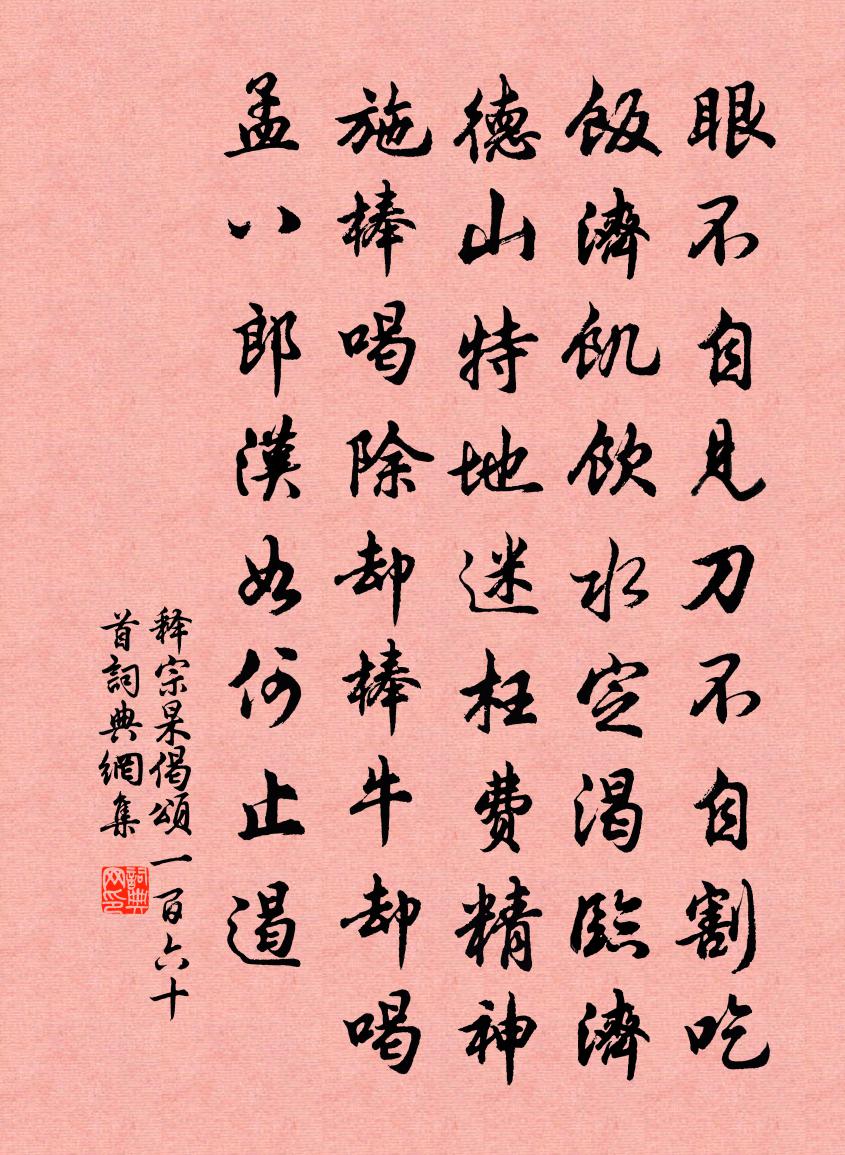 眼不自見刀不自割吃
飯濟飢飲水定渴臨濟
德山特地迷枉費精神
施棒喝除却棒牛却喝
孟八郎漢如何止遏
释宗杲偈頌一百六十
首詞典網集
詞典
网印